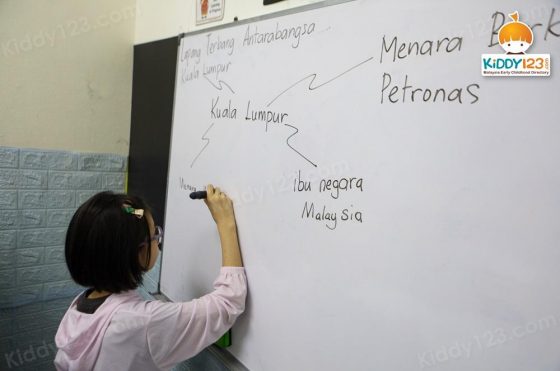 Lapang Terbang Antarabangsa...
Kuala Lumpur
Kuala Lumpur
Menara
Petronas
Menara
ibu negara
Malaysia
KiDDY123.com
Malaysia Early Childhood Directory
Kiddy123.com